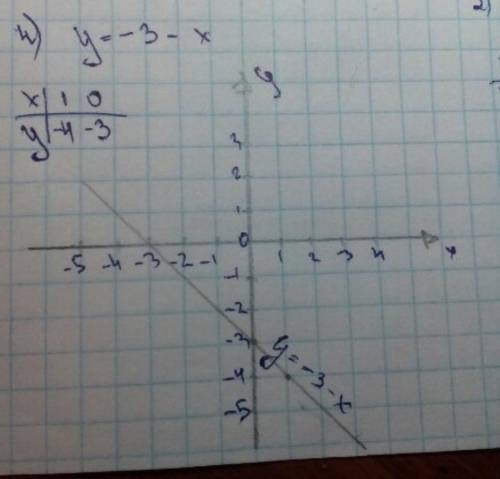 4) y = -3 - x
2)
x | 1 0
y | -4 -3
y
3
2
1
0
-5 -4 -3 -2 -1 1 2 3 4 x
-1
-2
-3
-4
-5
y = -3 - x